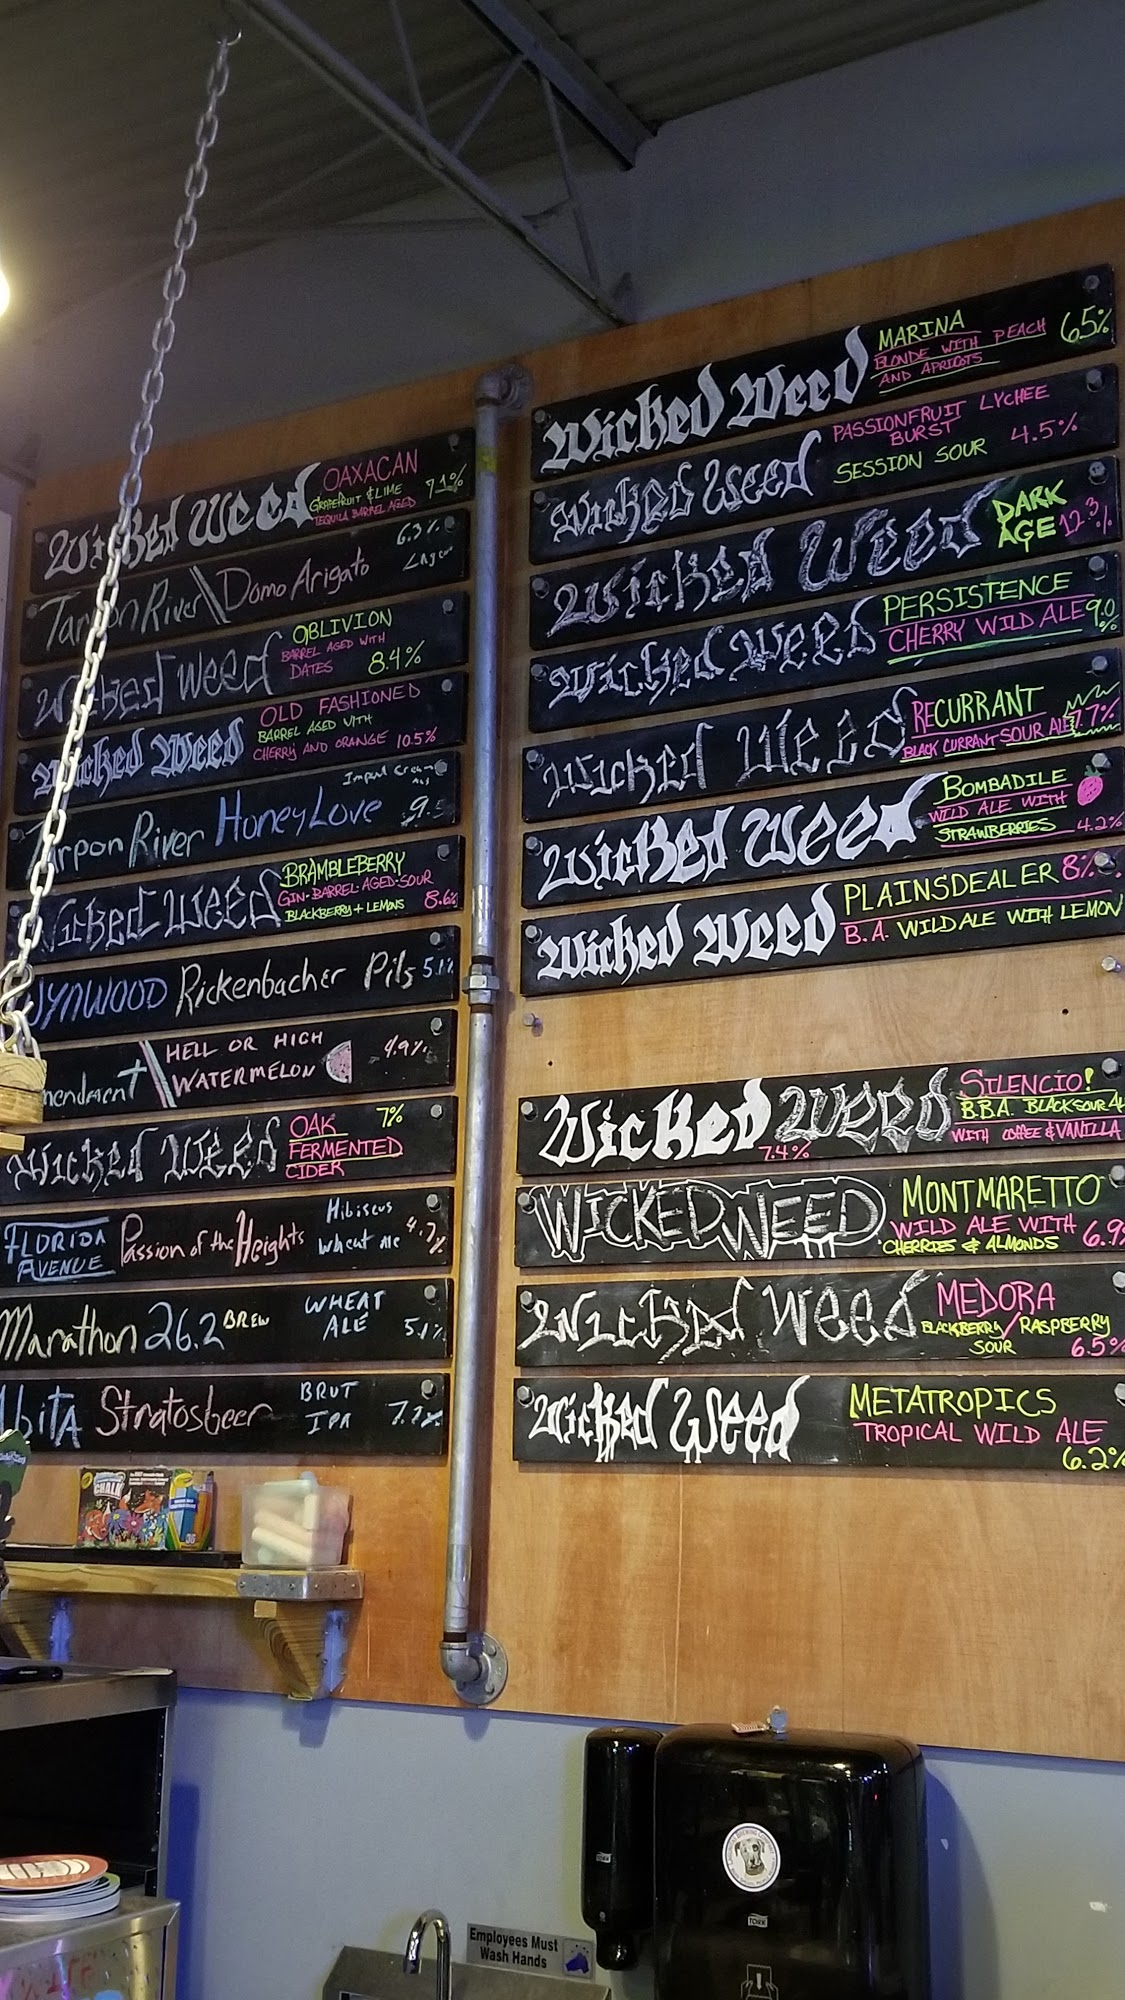 Wicked Weed OAXACAN
GRAPEFRUIT & LIME
TEQUILA BARREL AGED
7.1%
Tarpon River \ Domo Arigato
6.3%
Lager
Wicked Weed OBLIVION
BARREL AGED WITH
DATES 8.4%
Wicked Weed OLD FASHIONED
BARREL AGED WITH
CHERRY AND ORANGE 10.5%
Tarpon River Honey Love
Wicked Weed BRAMBLEBERRY
GIN-BARREL-AGED-SOUR
BLACKBERRY + LEMONS 8.6%
WYNWOOD Rickenbacher Pils 5.1%
mendment \ HELL OR HIGH
WATERMELON 4.9%
Wicked Weed OAK 7%
FERMENTED
CIDER
FLORIDA
AVENUE
Passion of the Heights
Hibiscus
Wheat Ale
4.7%
Marathon 26.2 BREW
WHEAT
ALE
5.1%
AbitA Stratosbeer
BRUT
IPA
7.7%
Wicked Weed MARINA
BLONDE WITH PEACH
AND APRICOTS
6.5%
Wicked Weed PASSIONFRUIT LYCHEE
BURST
SESSION SOUR
4.5%
Wicked Weed DARK
AGE 12.3%
Wicked Weed PERSISTENCE
CHERRY WILD ALE 9.0
%
Wicked Weed RECURRANT
BLACK CURRANT SOUR ALE 7.7%
Wicked Weed BOMBADILE
WILD ALE WITH
STRAWBERRIES 4.2%
Wicked Weed PLAINSDEALER 8%
B.A. WILD ALE WITH LEMON
Wicked Weed SILENCIO!
B.B.A. BLACK SOUR AL
WITH COFFEE & VANILLA
7.4%
WICKED WEED MONTMARETTO
WILD ALE WITH
CHERRIES & ALMONDS
6.9%
Wicked Weed MEDORA
BLACKBERRY/RASPBERRY
SOUR
6.5%
Wicked Weed METATROPICS
TROPICAL WILD ALE
6.2%
CHALK
Employees Must
Wash Hands
TORK
TORK